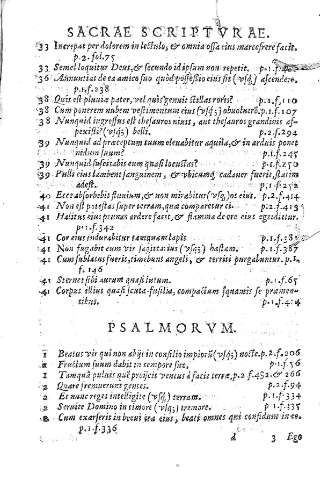 SACRAE SCRIPTVRAE.
33 Increpat per dolorem in lectulo, & omnia ossa eius marcescere facit.
p.2.fol.75
33 Semel loquitur Deus, & secundo id ipsum non repetit. p.1.f.
36 Annunciat de ea amico suo quòd possessio eius sit (vsq;) ascendere.
p.1.f.238
38 Quis est pluuiæ pater, vel quis genuit stillas roris? p.2.f.110
38 Cum ponerem nubem vestimentum eius (vsq;) obuoluerē. p.1.f.107
38 Nunquid ingressus est thesauros niuis, aut thesauros grandinis as-
pexisti? (vsq;) belli. p.2.f.294
39 Nunquid ad præceptum tuum eleuabitur aquila, & in arduis ponet
nidum suum? p.1.f.245
39 Nunquid suscitabis eum quasi locustas? p.1.f.250
39 Pulli eius lambent sanguinem, & vbicumq; cadauer fuerit, statim
adest. p.1.f.252
40 Ecce absorbebit fluuium, & non mirabitur (vsq;) os eius. p.2.f.414
41 Non est potestas super terram, quæ comparetur ei. p.2.f.413
41 Halitus eius prunas ardere facit, & flamma de ore eius egreditur.
p.1.f.342
41 Cor eius indurabitur tamquam lapis p.1.f.383
41 Non fugabit eum vir sagittarius (vsq;) hastam. p.1.f.387
41 Cum sublatus fuerit, timebunt angeli, & territi purgabuntur. p.1.
f.146
41 Sternet sibi aurum quasi lutum. p.1.f.65
41 Corpus illius quasi scuta fusilia, compactum squamis se premen-
tibus. p.1.f.414
PSALMORVM.
1 Beatus vir qui non abijt in consilio impiorū (vsq;) nocte. p.2.f.206
1 Fructum suum dabit in tempore suo, p.1.f.56
1 Tamquā puluis quē proijcit ventus à facie terræ, p.2.f.452. & 266
2 Quare fremuerunt gentes. p.2.f.94
2 Et nunc reges intelligite (vsq;) terram. p.1.f.334
2 Seruite Domino in timore (vsq;) tremore. p.1.f.335
2 Cum exarserit in breui ira eius, beati omnes qui confidunt in eo.
p.1.f.336
d 3 Ego